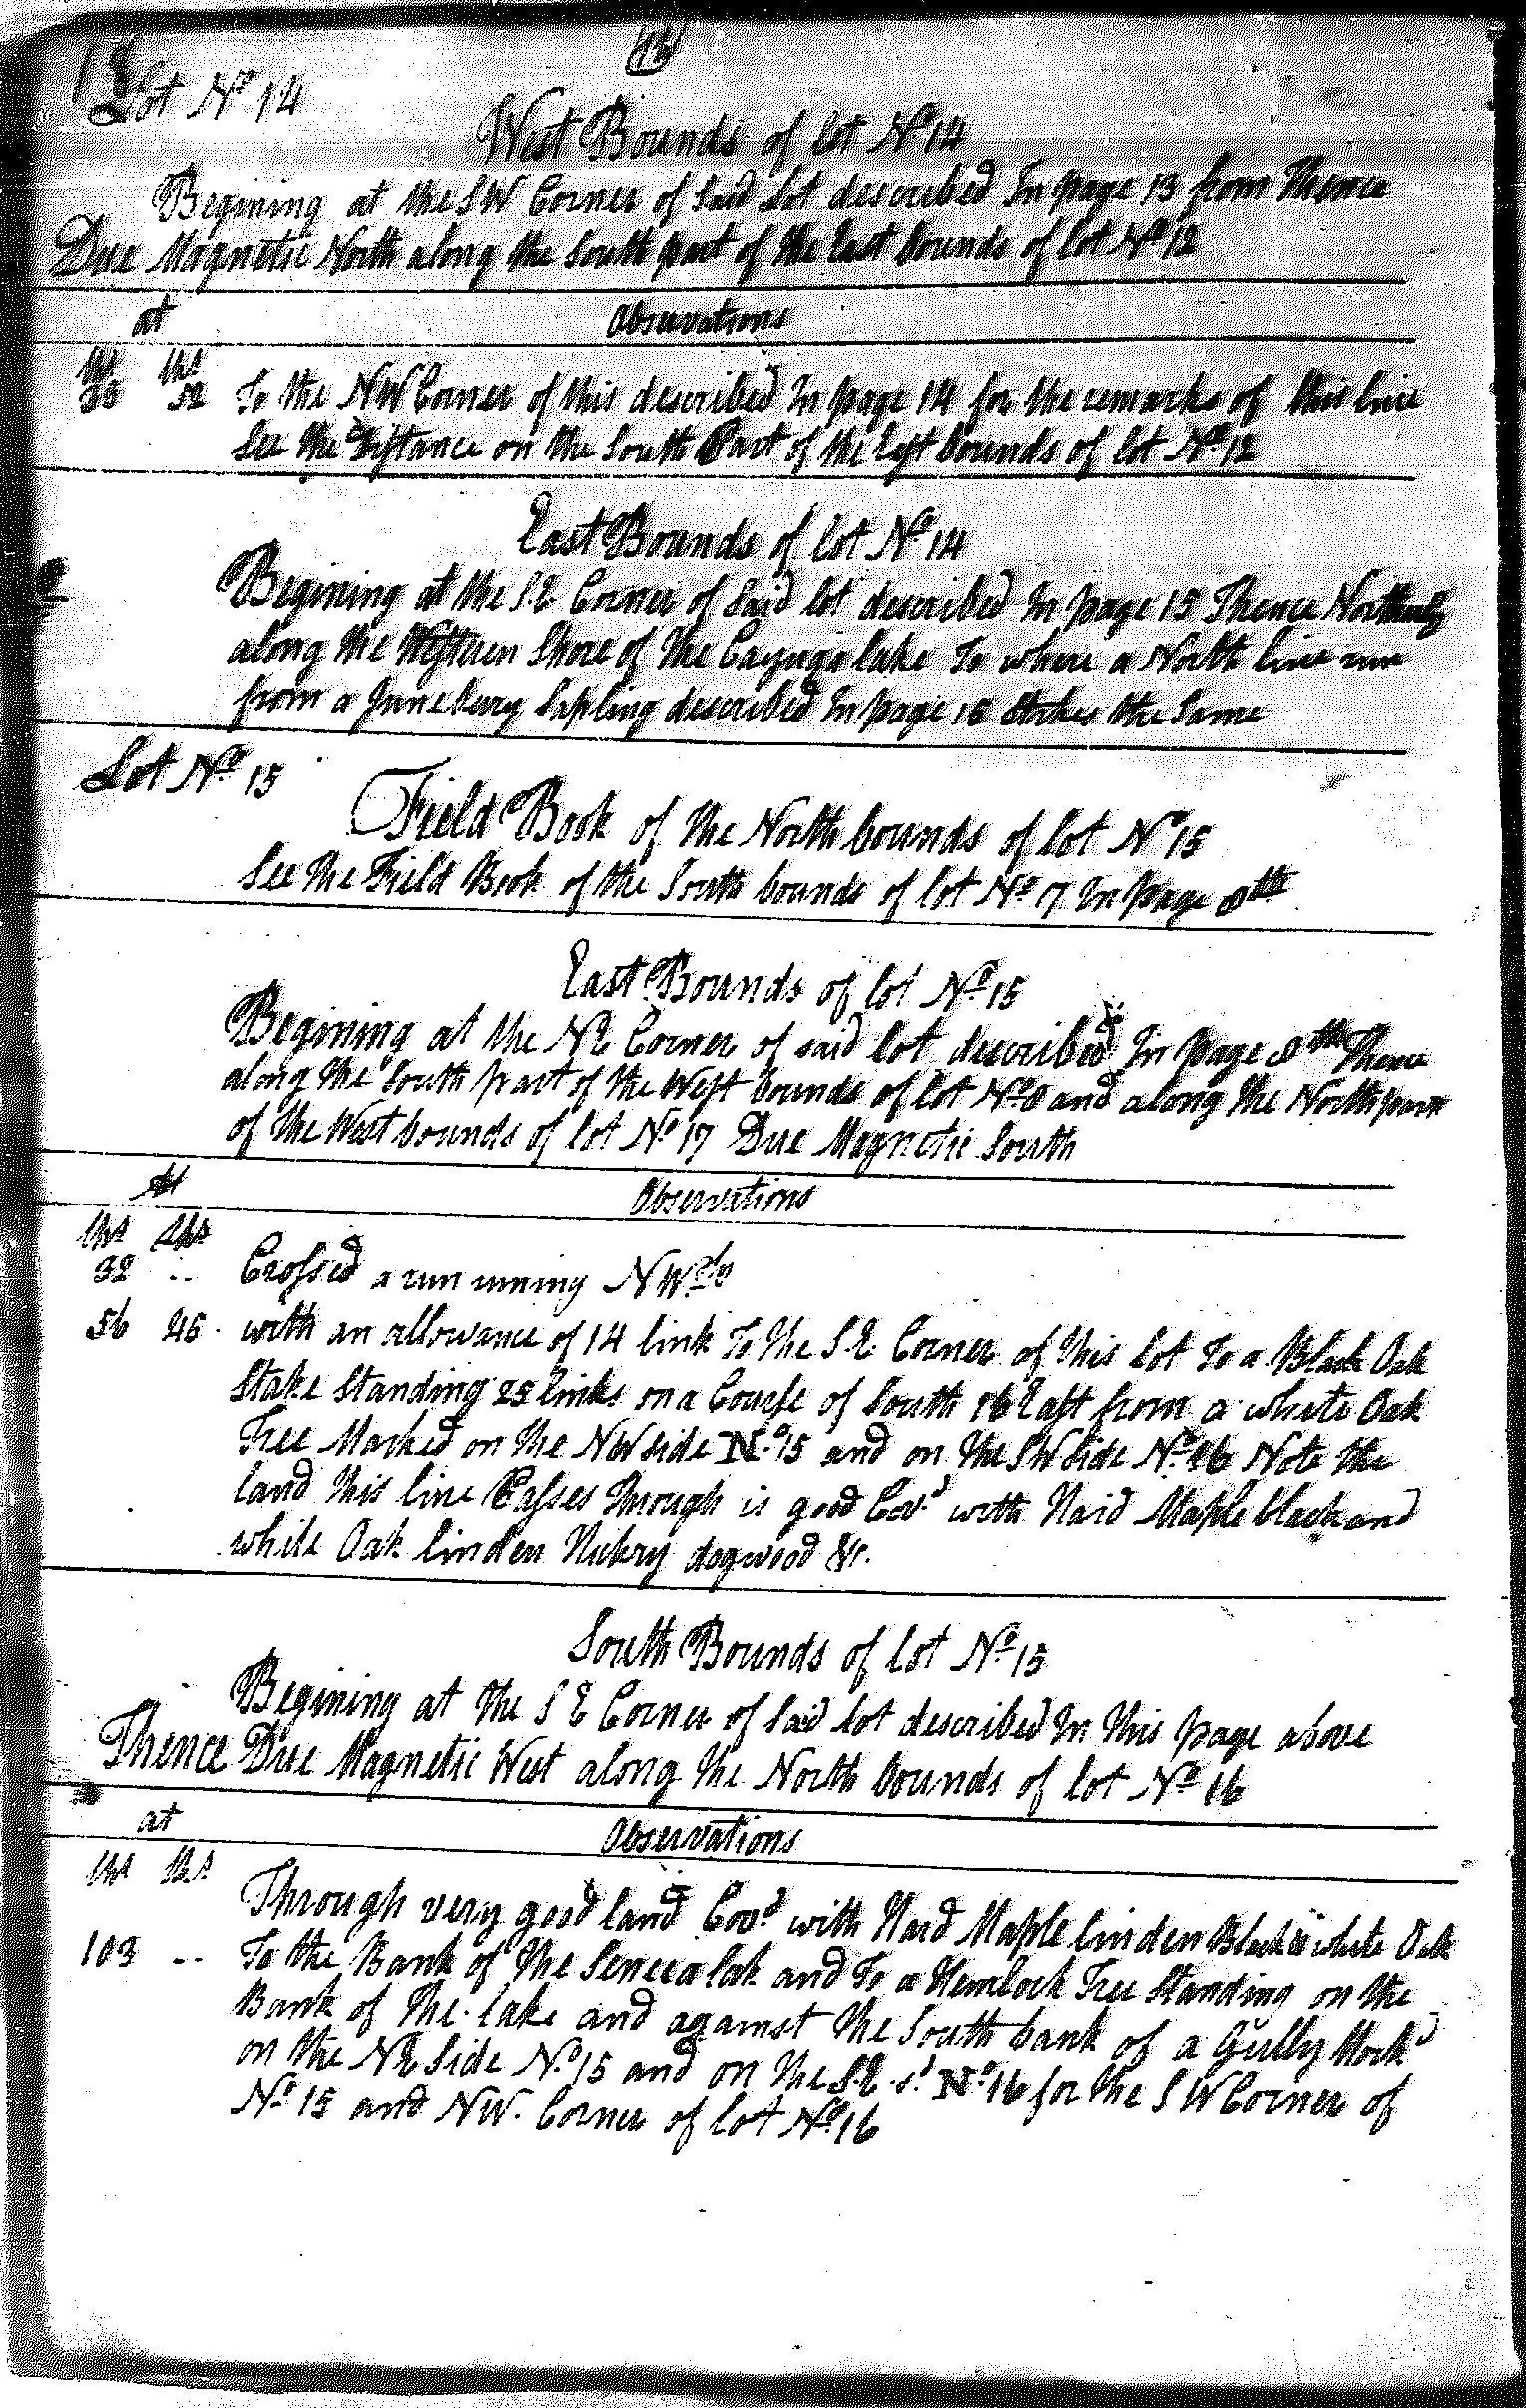 16
Lot No 14
West Bounds of lot No 14
Begining at the SW Corner of Said Lot described In page 13 from Thence
Due Magnetic North along the South part of the East bounds of lot No 12
at Observations
chs lks
52 To the NW Corner of this described In page 14 for the remarks of this line
See the Distance on the South Part of the East bounds of lot No 12
East Bounds of lot No 14
Begining at the S.E Corner of Said lot described In page 15 Thence Northerly
along the Western Shore of the Cayuga lake To where a North line run
from a Juneberry Sapling described In page 15 Strikes the Same
Lot No 15
Field Book of the North bounds of lot No 15
See the Field Book of the South bounds of lot No 7 In page 8th
East Bounds of lot No 15
Begining at the NE Corner of said lot described In page 8th Thence
along the South part of the West bounds of lot No 8 and along the North part
of the West bounds of lot No 17 Due Magnetic South
At Observations
chs lks
32 .. Crossed a run runing NWly
56 45 with an allowance of 14 link To the S.E. Corner of this lot To a Black Oak
Stake Standing 25 links on a Course of South 16 East from a white Oak
Tree Marked on the NW side No 15 and on the SW Side No 16 Note the
land this line Passes through is good Covd with Hard Maple black and
white Oak linden Hickry dogwood &c.
South Bounds of lot No 15
Begining at the S E Corner of Said lot described In this page above
Thence Due Magnetic West along the North bounds of lot No 16
at Observations
chs lks
Through very good land Covd with Hard Maple linden Black & white Oak
103 .. To the Bank of the Seneca lak and To a Hemlock Tree Standing on the
Bank of the lake and against the South bank of a Gully Markd
on the NE Side No 15 and on the S.E. sd No 16 for the S W Corner of
No 15 and NW. Corner of lot No 16